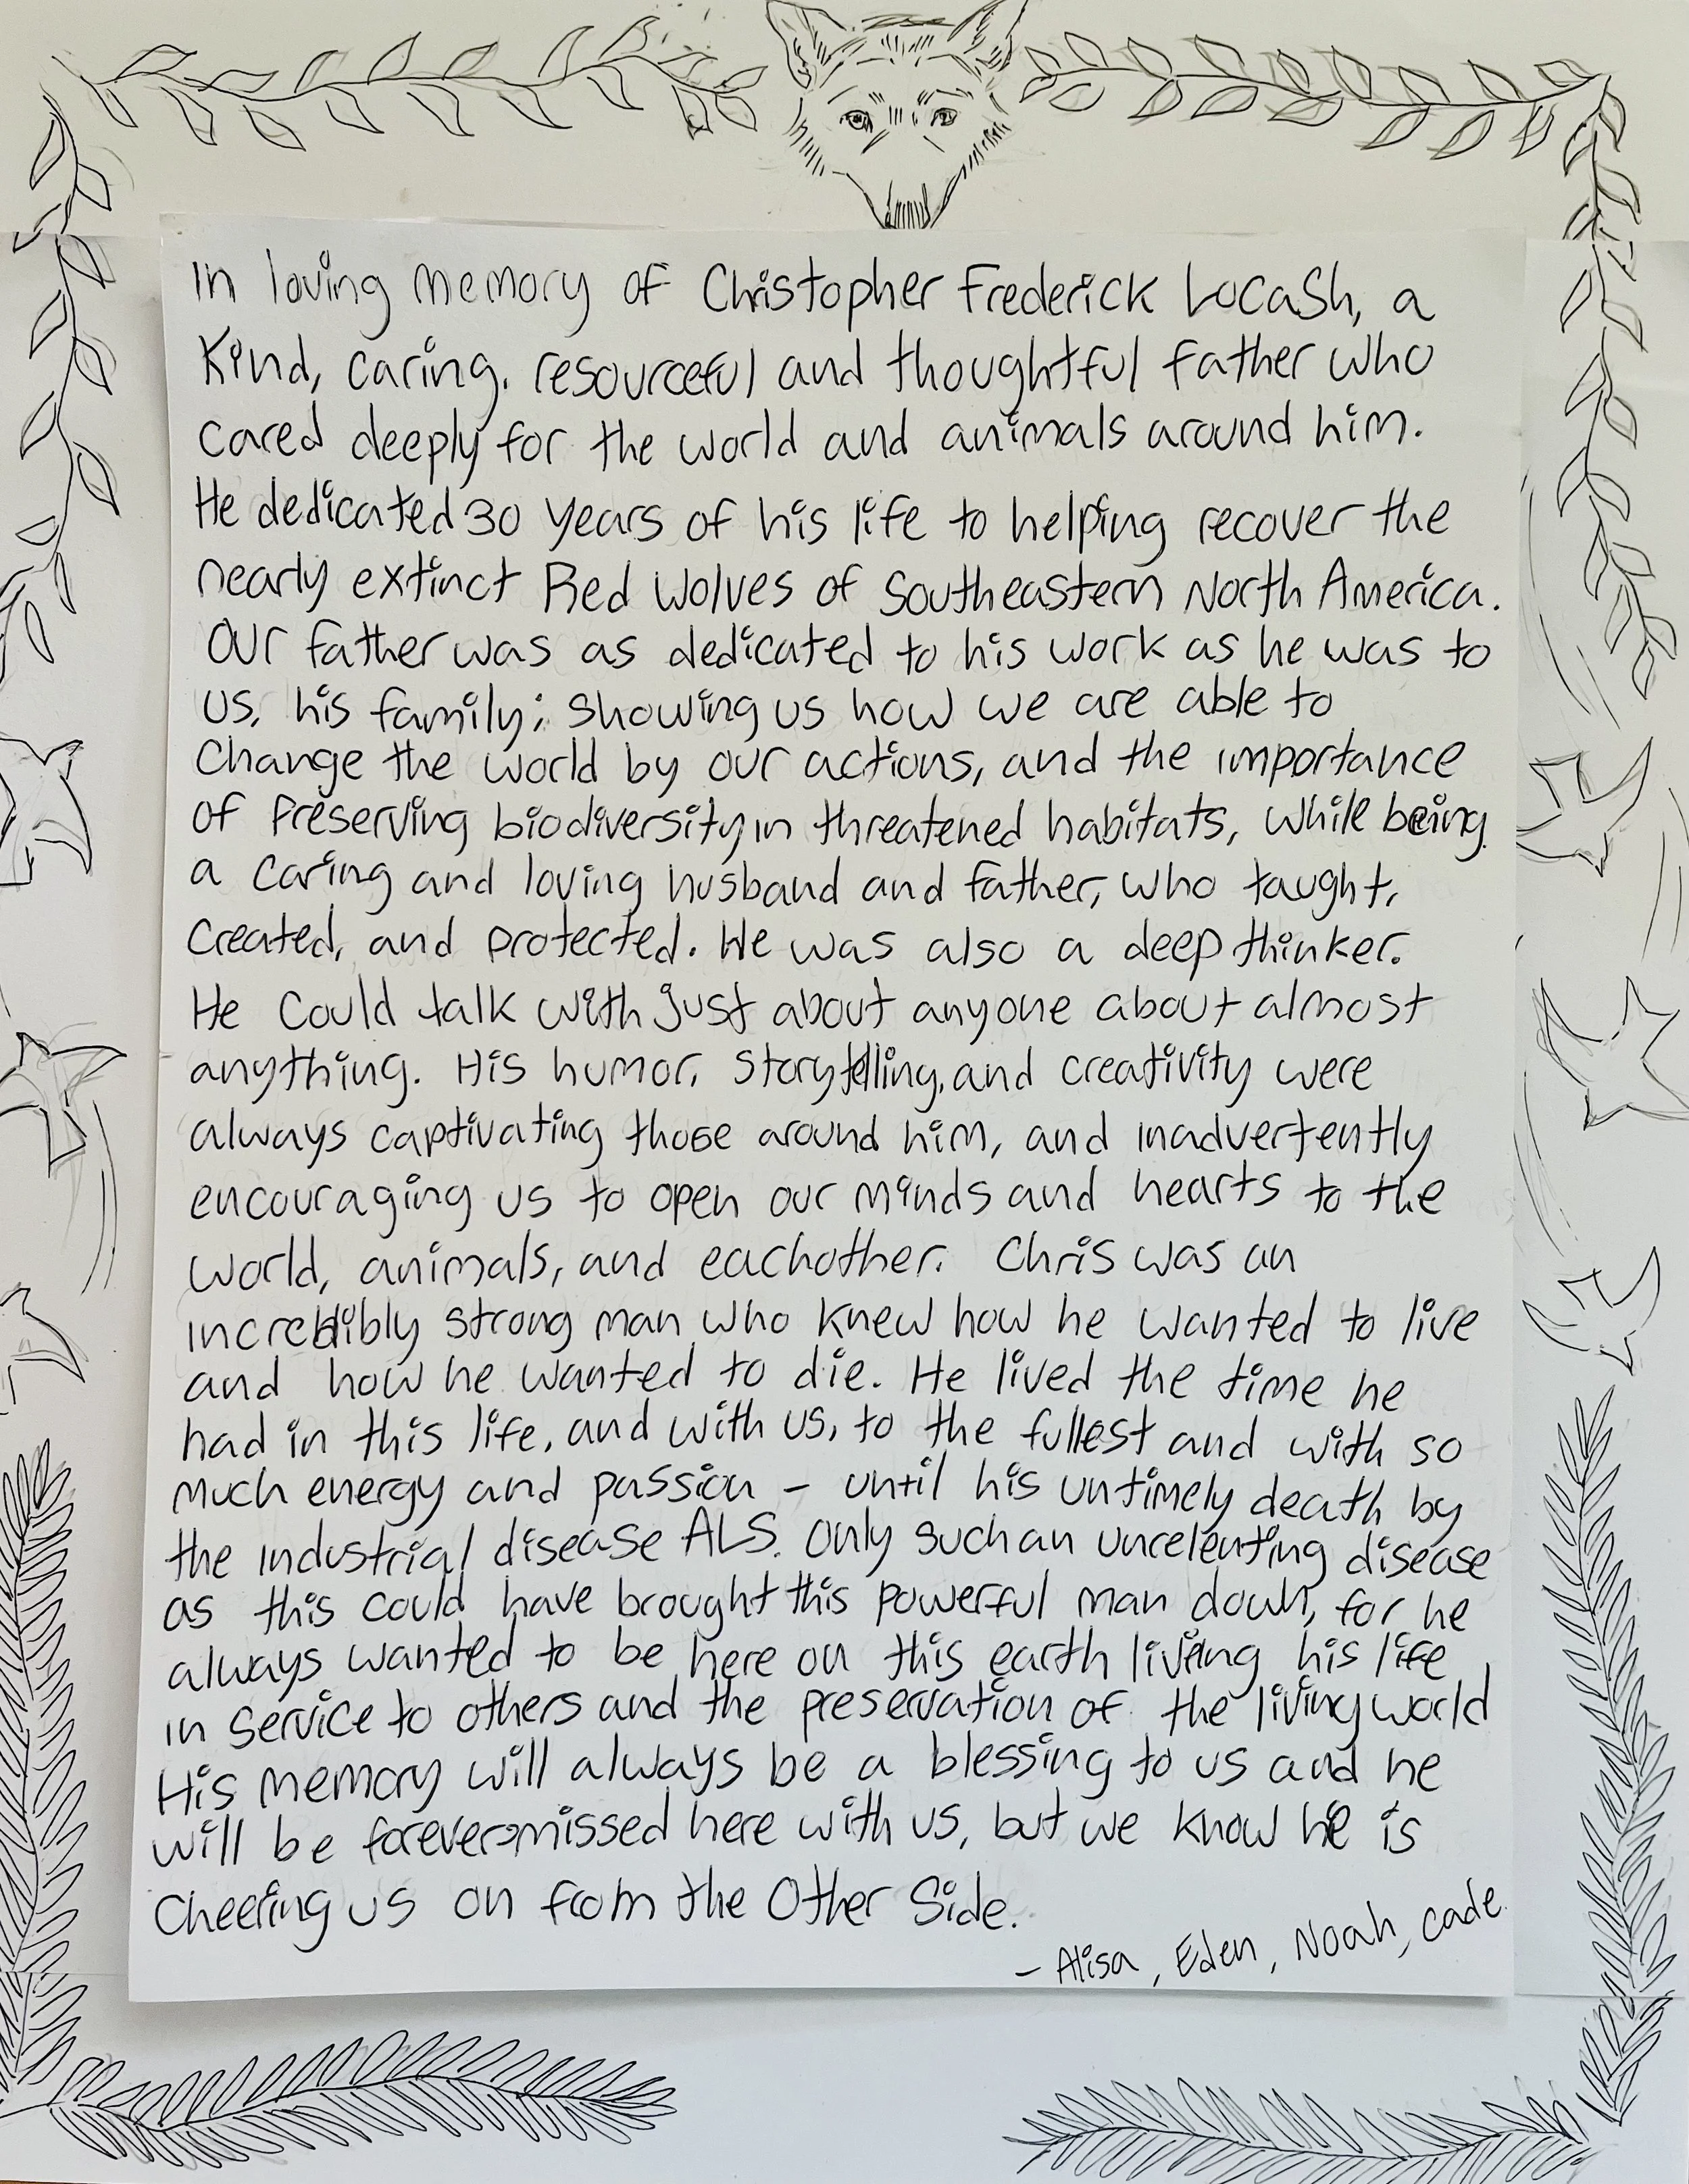 In loving memory of Christopher Frederick Lucash, a
Kind, caring, resourceful and thoughtful father who
cared deeply for the world and animals around him.
He dedicated 30 years of his life to helping recover the
nearly extinct Red Wolves of Southeastern North America.
Our father was as dedicated to his work as he was to
us, his family; showing us how we are able to
change the world by our actions, and the importance
of preserving biodiversity in threatened habitats, while being
a caring and loving husband and father, who taught,
created, and protected. He was also a deep thinker.
He could talk with just about anyone about almost
anything. His humor, storytelling, and creativity were
always captivating those around him, and inadvertently
encouraging us to open our minds and hearts to the
world, animals, and eachother. Chris was an
incredibly strong man who knew how he wanted to live
and how he wanted to die. He lived the time he
had in this life, and with us, to the fullest and with so
much energy and passion - until his untimely death by
the industrial disease ALS. Only such an unrelenting disease
as this could have brought this powerful man down, for he
always wanted to be here on this earth living his life
in service to others and the preservation of the living world
His memory will always be a blessing to us and he
will be forever missed here with us, but we know he is
cheering us on from the Other Side.
- Alisa, Eden, Noah, Cade